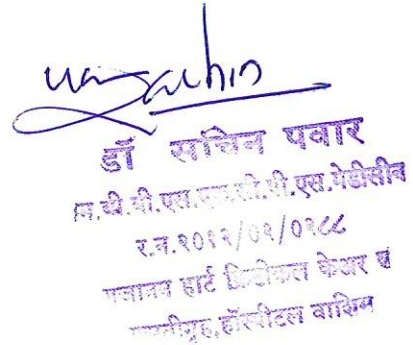 डॉ सचिन पवार
एम.बी.बी.एस.एफ.सी.पी.एस.मेडीसीन
र.न.२०११/०५/०२८८
गजानन हार्ट क्रिटीकल केअर व
हॉस्पीटल वाशिम